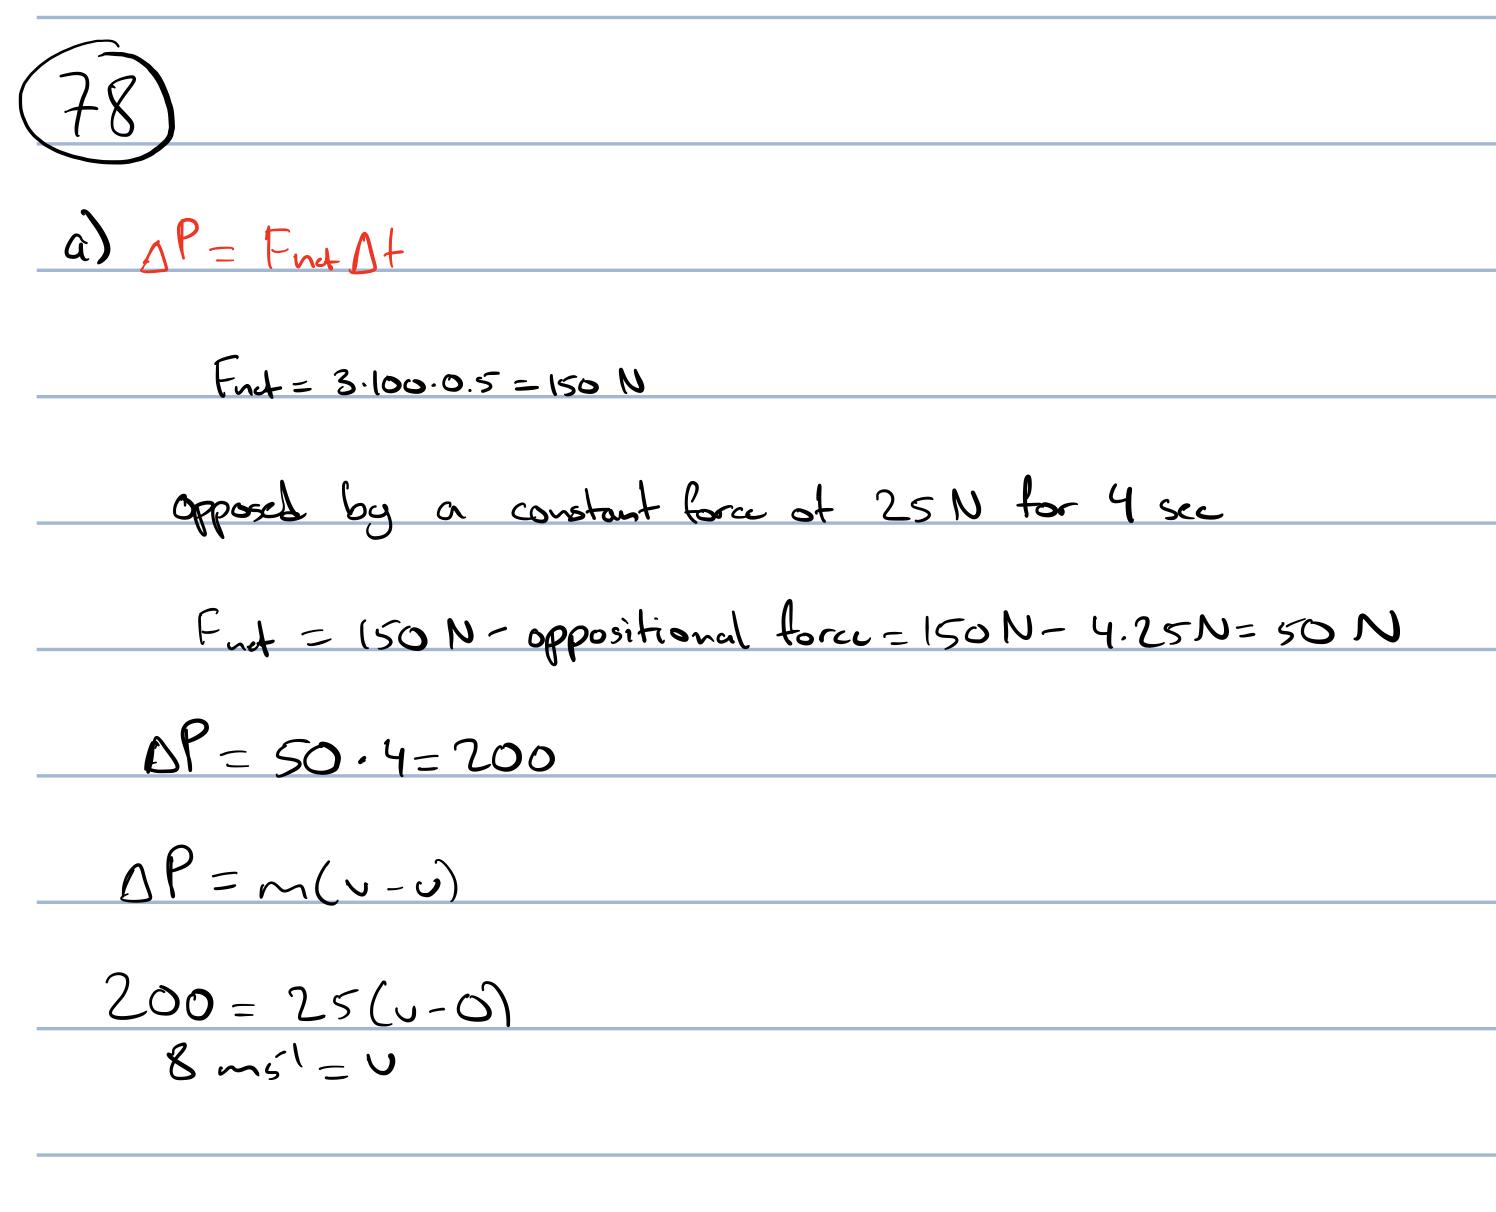 78
a) ΔP = Fnet Δt
Fnet = 3·100·0.5 = 150 N
opposed by a constant force of 25 N for 4 sec
Fnet = 150 N - oppositional force = 150 N - 4·25 N = 50 N
ΔP = 50 · 4 = 200
ΔP = m(v - u)
200 = 25(v - 0)
8 ms⁻¹ = v